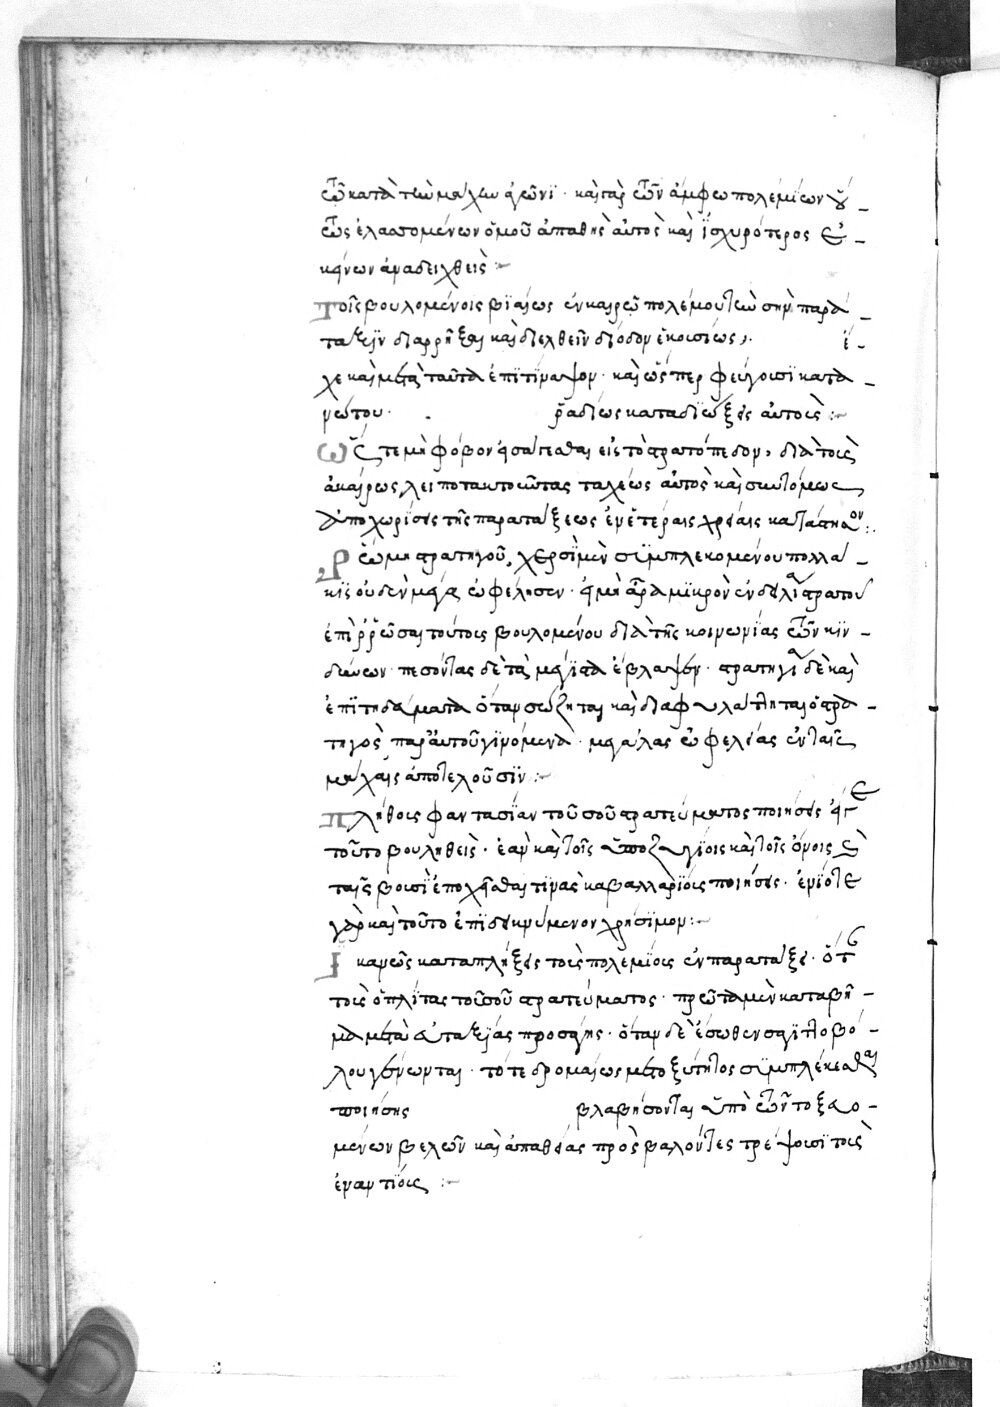 τῶν κατὰ τὴν μάχην ἀγῶνι · καὶ γὰρ τῶν ἀμφω πολεμίων οὕ
τως ἐλαττομένων ὁμοῦ ἀπαθὴς αὐτὸς καὶ ἰσχυρότερος ἐ
κείνων ἀναδειχθεὶς :
Τοῖς βουλομένοις βιαίως ἐν καιρῷ πολέμου τὴν σὴν παρά
ταξιν διαρρῆξαι καὶ διελθεῖν δίοδον ἑκουσίως, ἔ
χε καὶ μετὰ ταῦτα ἐπιτίμαψον · καὶ ὥσπερ φεύγουσι κατὰ
νώτου · ῥαδίως καταδιώξεις αὐτούς :
Ὥστε μὴ φόβον εἰσάγεσθαι εἰς τὸ στρατόπεδον, διὰ τοὺς
ἀκαίρως λειποτακτοῦντας ταχέως αὐτὸς καὶ συντόμως
ἀποχωρίσεις τῆς παρατάξεως ἐν ἑτέραις χρείαις κατάστησον :
Ῥώμη στρατηγοῦ, χερσὶ μὲν συμπλεκομένου πολλά
κις οὐδὲν μέγα ὠφέλησεν · εἰ μὴ ἄρα μικρὸν ἐν δυλία στρατοῦ
ἐπιρρῶσαι τούτοις βουλομένου διὰ τῆς κοινωνίας τῶν κιν
δύνων · πεσόντας δὲ τὰ μέγιστα ἔβλαψεν · στρατηγία δὲ καὶ
ἐπιτηδεύματα ὅταν σώζηται καὶ διαφυλάττηται ὁ στρα
τηγὸς παρ' αὐτοῦ γινόμενα · μεγάλας ὠφελείας ἐν ταῖς
μάχαις ἀποτελοῦσιν :
Πλήθους φαντασίαν τοῦ σοῦ στρατεύματος ποιήσεις εἴγε
τοῦτο βουληθεὶς · ἐὰν καὶ τοῖς ὑποζυγίοις καὶ τοῖς ὄνοις καὶ
ταῖς βουσὶ ἐποχεῖσθαι τινὰς καβαλλαρίους ποιήσεις · ἐνίοτε
γὰρ καὶ τοῦτο ἐπιδεικνύμενον χρήσιμον :
Ἱκανῶς καταπλήξεις τοὺς πολεμίους ἐν παρατάξει · ὅτε
τοὺς ὁπλίτας τοῦ σοῦ στρατεύματος · πρῶτα μὲν κατὰ βῆ
μα μετὰ εὐταξίας προσάγης · ὅταν δὲ ἔσωθεν σαγιττοβό
λου γένωνται · τότε δρομαίως μετ' ὀξύτητος συμπλέκεσθαι
ποιήσης βλαβήσονται ὑπὸ τῶν τοξευο
μένων βελῶν καὶ ἀπαθείας προσβαλόντες τρέψουσι τοὺς
ἐναντίους :